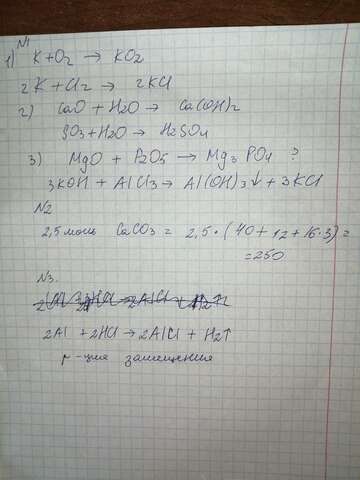 N1
1) K+O2 → KO2
2K+Cl2 → 2KCl
2) CaO + H2O → Ca(OH)2
SO3+H2O → H2SO4
3) MgO + P2O5 → Mg3PO4 ?
3KOH + AlCl3 → Al(OH)3↓ + 3KCl
N2
2,5 моль CaCO3 = 2,5·(40+12+16·3)=
=250
N3.
2Al +2HCl → 2AlCl + H2↑
р-ция замещения